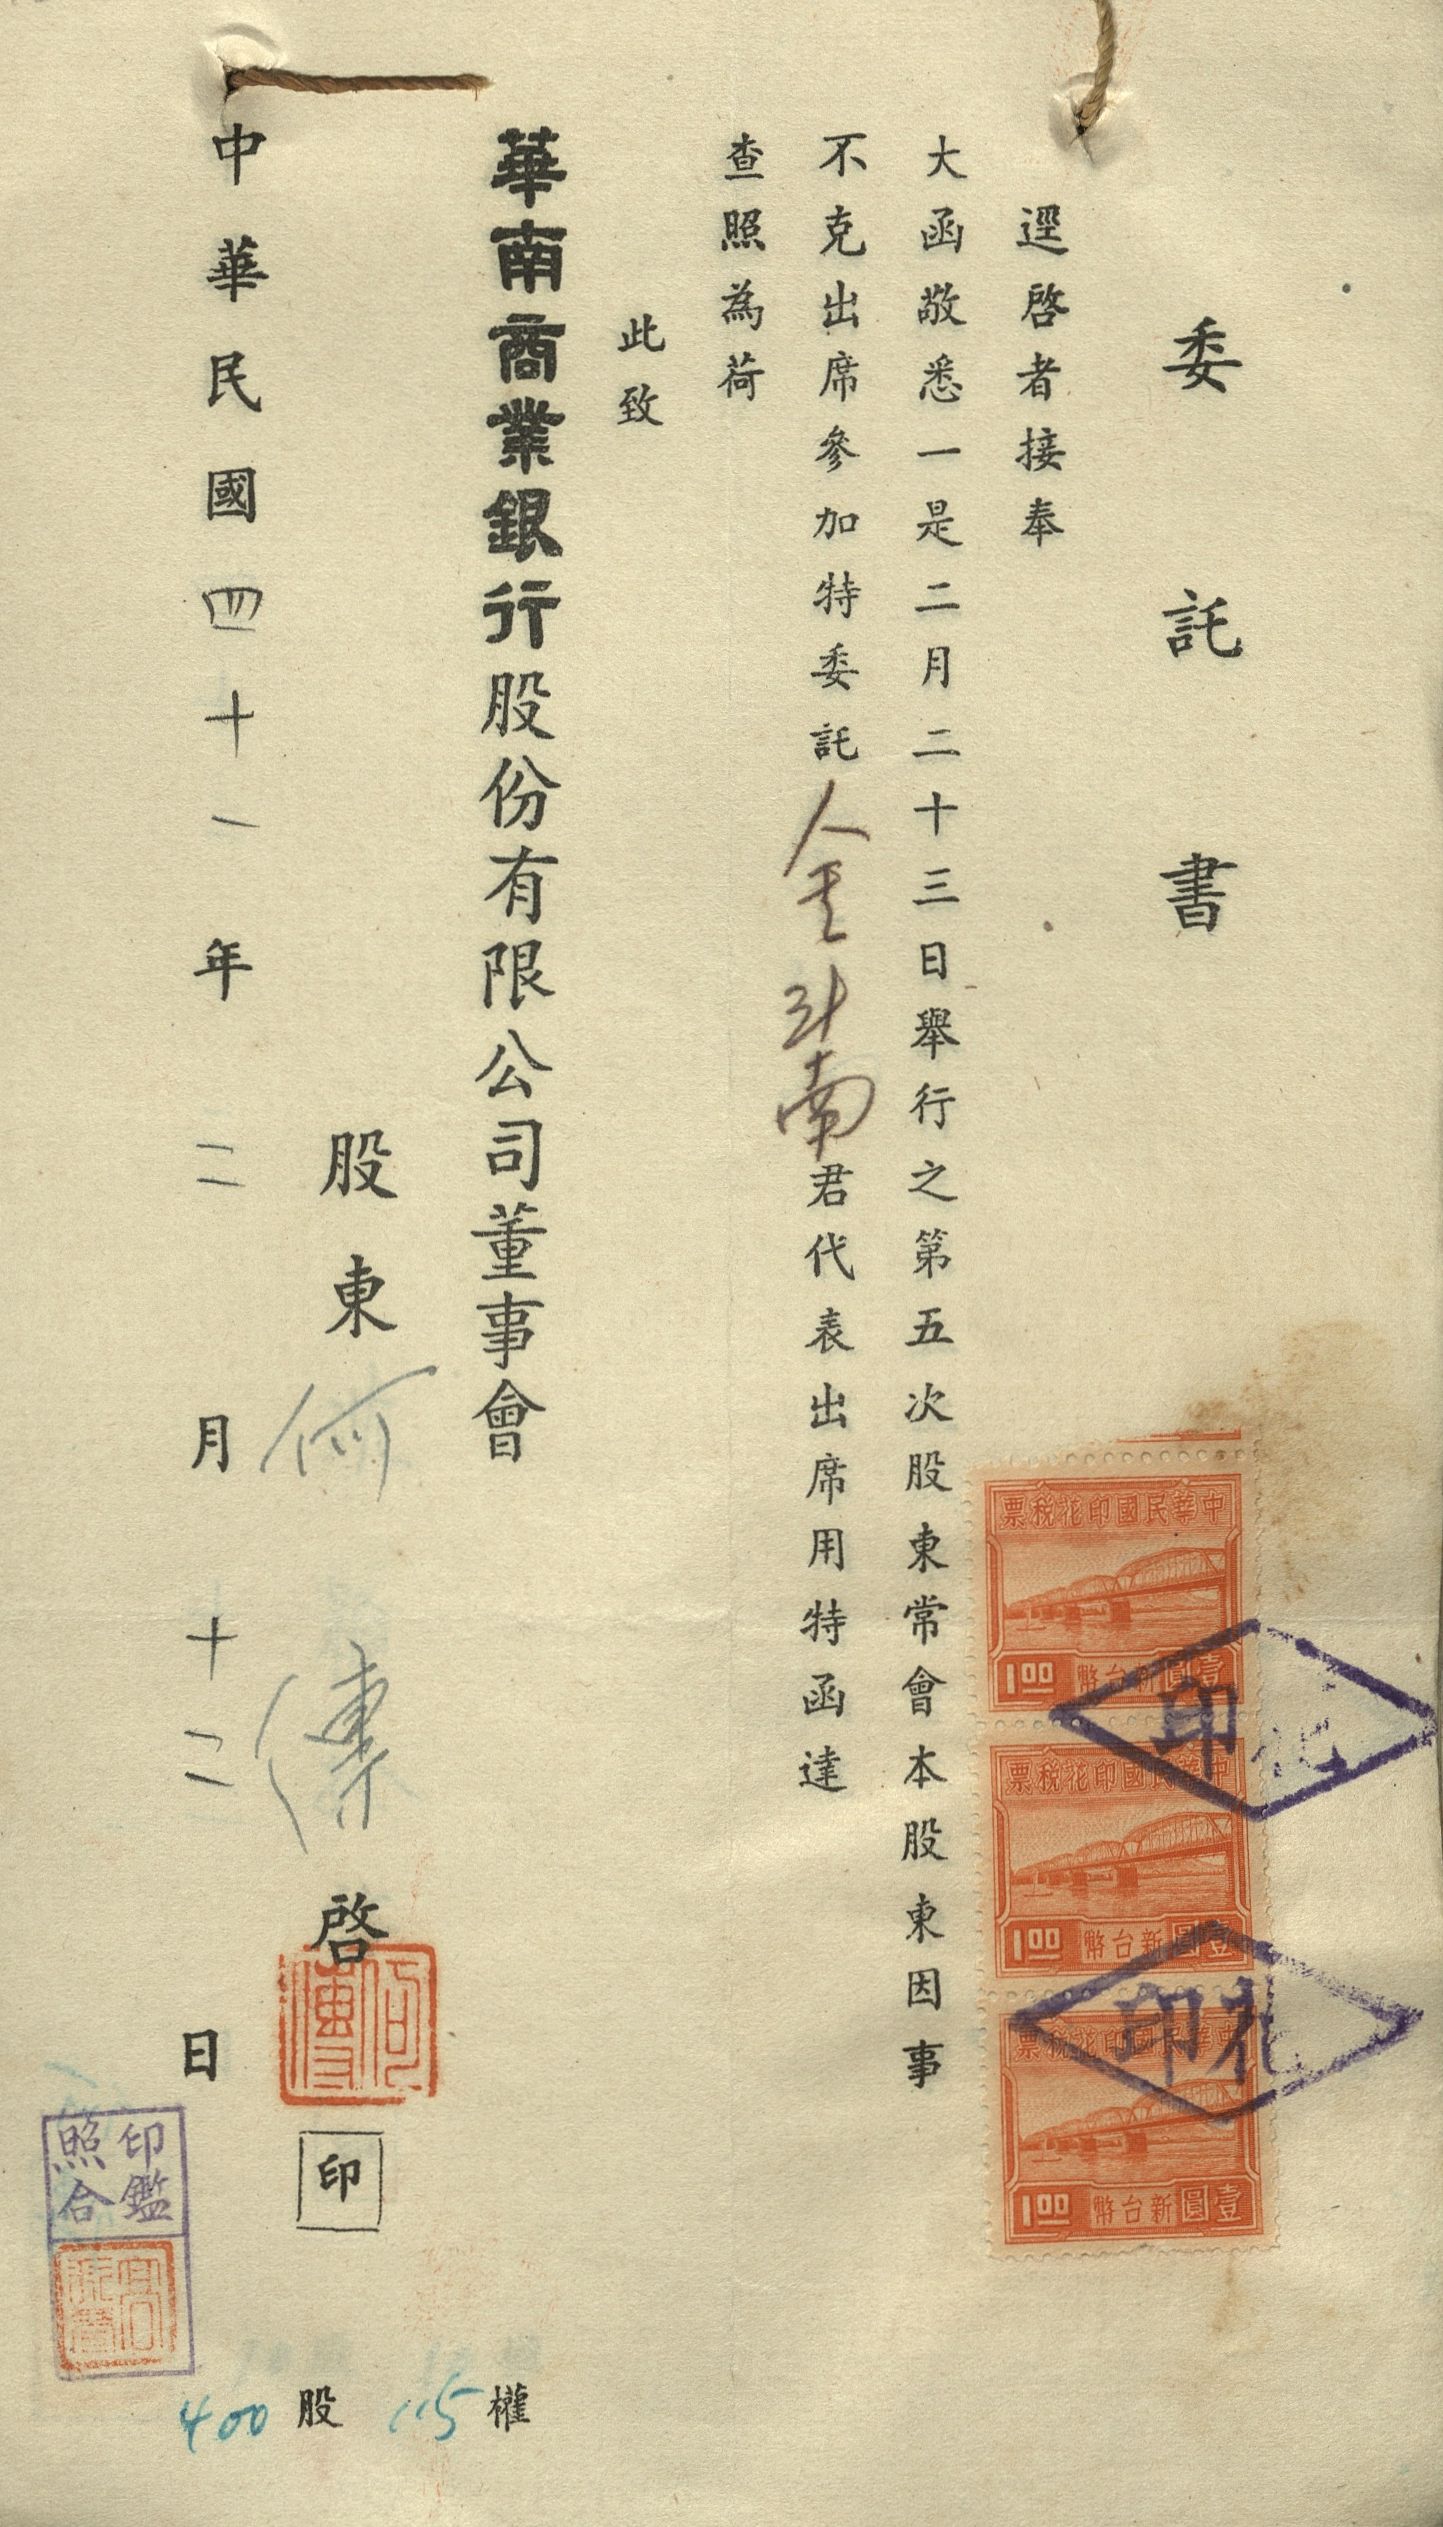 委託書
逕啓者接奉
大函敬悉一是二月二十三日舉行之第五次股東常會本股東因事
不克出席參加特委託金斗南君代表出席用特函達
查照為荷
此致
華南商業銀行股份有限公司董事會
股東何傳啓
何傳
印
中華民國四十一年二月十二日
印鑑
照合
115權
400股
中華民國印花稅票
壹圓新台幣
1.00
中華民國印花稅票
壹圓新台幣
1.00
中華民國印花稅票
壹圓新台幣
1.00
花印
花印